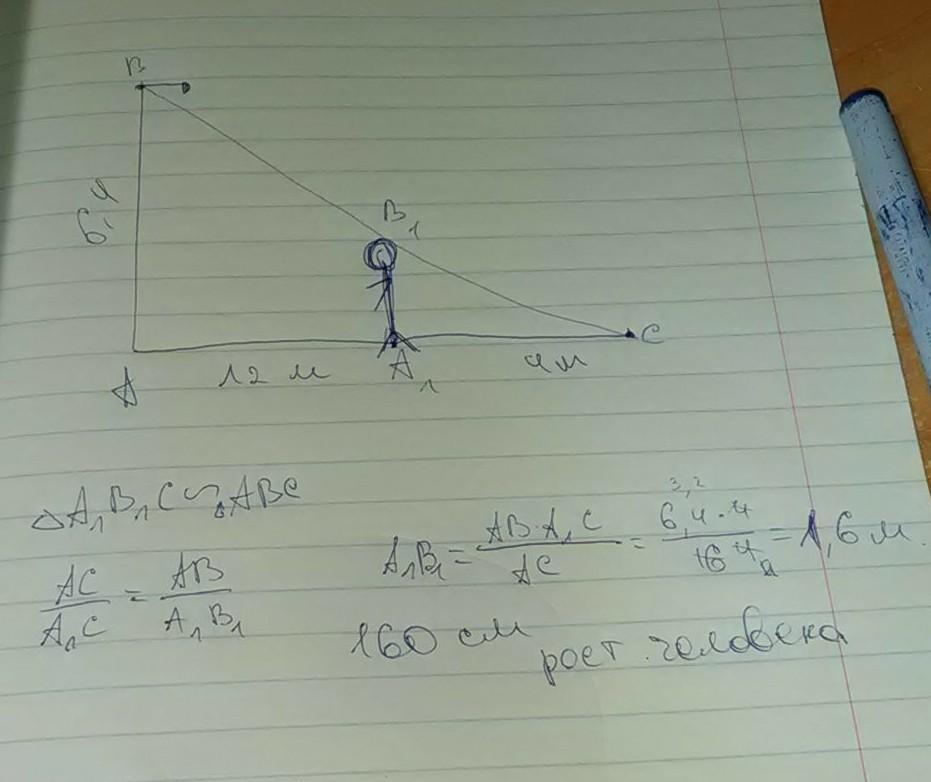 B
6,4
B₁
A
12 м
A₁
4м
C
△A₁B₁C ∽ △ABC
AC/A₁C = AB/A₁B₁
A₁B₁ = AB·A₁C/AC = 6,4·4/16 = 1,6 м.
3,2
4
160 см
рост человека